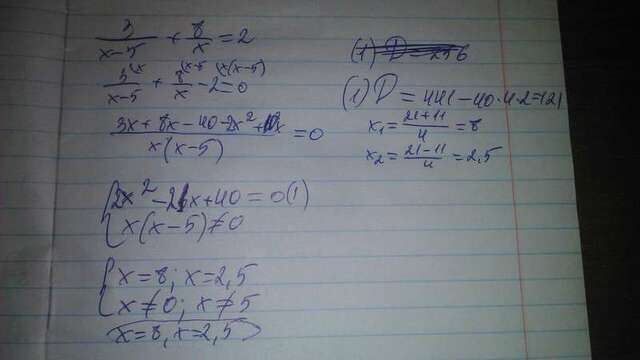 3/(x-5) + 8/x = 2
3^(x)/(x-5) + 8^(x-5)/x - 2^(x(x-5)) = 0
(3x+8x-40-2x²+10x)/(x(x-5)) = 0
{2x²-21x+40=0(1)
{x(x-5)≠0
{x=8; x=2,5
{x≠0; x≠5
x=8, x=2,5
(1) D=256
(1) D=441-40·4·2=121
x₁=(21+11)/4=8
x₂=(21-11)/4=2,5